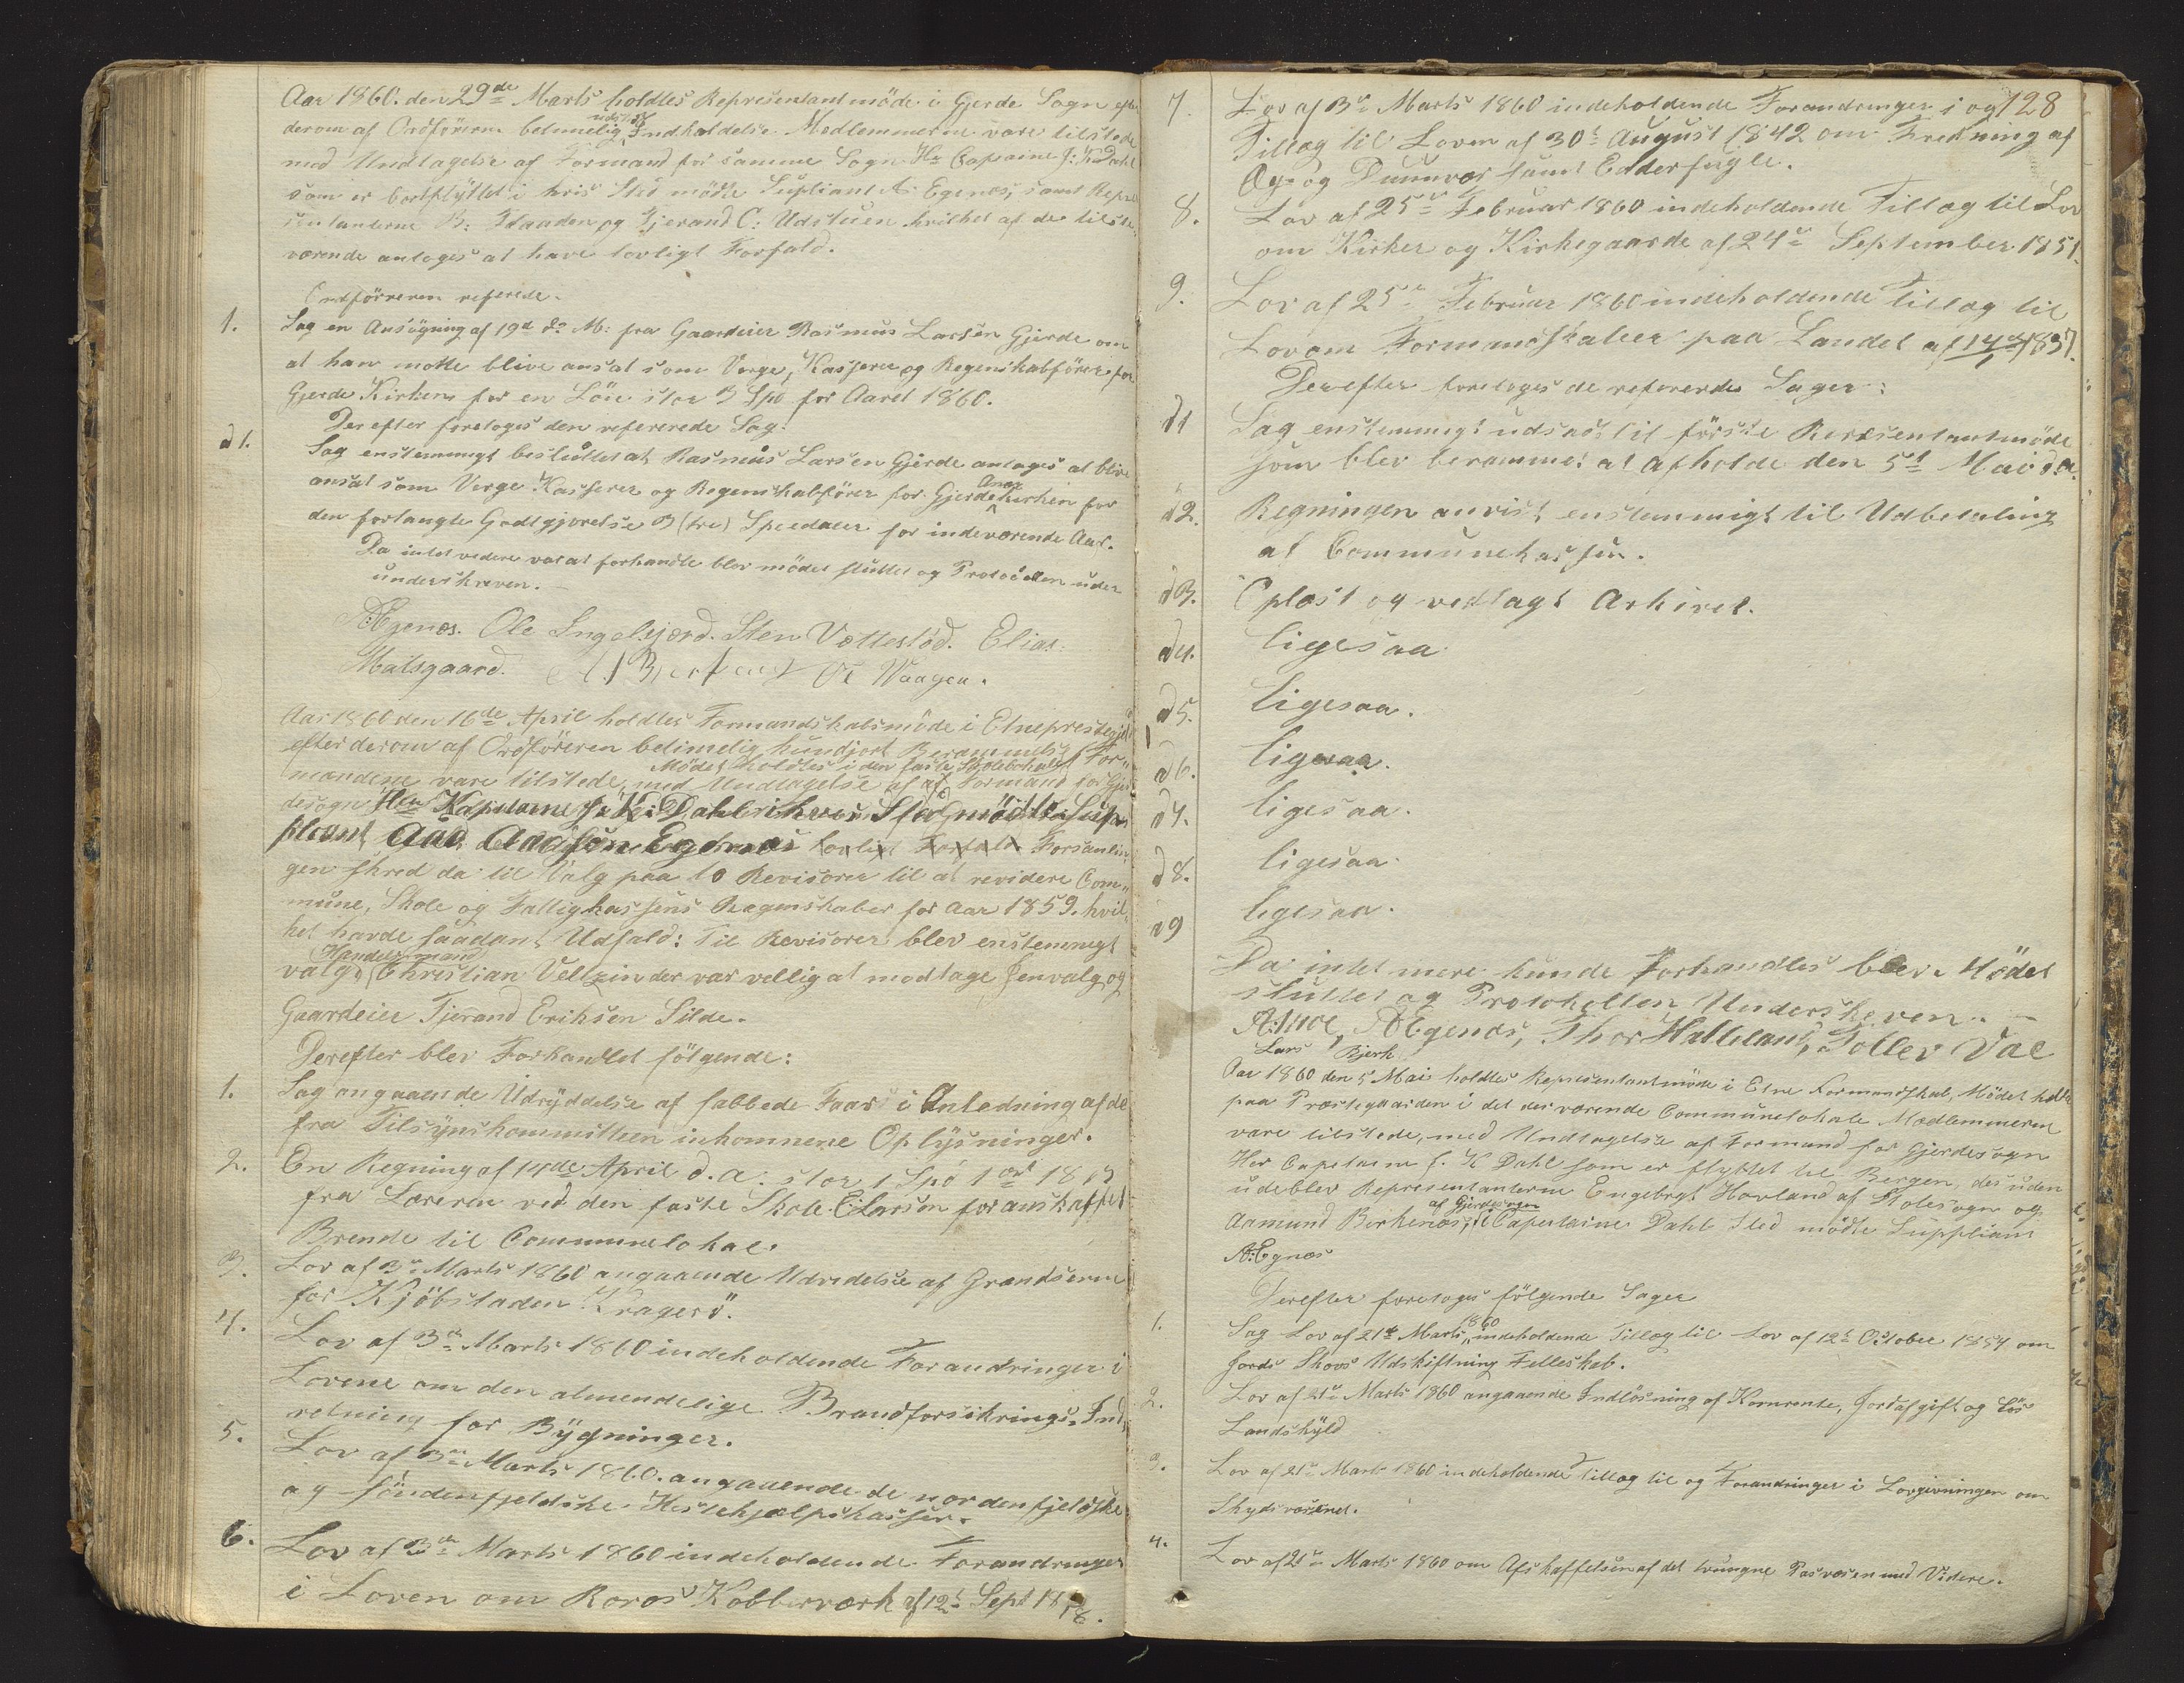 Aar 1860. den 29de Marts holdtes Representantmöde i Gjerde Sogn efter
derom af Ordförerern betimelig udstedt Indkaldelse. Medlemmerne vare tilstede
med Undtagelse af Formand for samme Sogn Hr Capaine J: K Dahl
som er bortflÿttet i hvis Sted mödte Supliant A: Egenæs, samt Repre
sentanterne B: Flaaden og Gjerand C: Udstuen hvilket af de tilste
værende antoges at have lovligt Forfald.
Ordförreren referede.
1. Sag en Ansögning af 19d ds M: fra Gaardeier Rasmus Larsen Gjerde om
at han motte blive ansat som Verge, Kasserer og Regenskabförer for
Gjerde Kirken for en Lön stor 3 Spd for Aaret 1860.
Derefter foretoges den refererede Sag.
d 1. Sag enstemmigt besluttet at Rasmus Larsen Gjerde antages at blive
ansat som Verge Kasserer og Regenskabförer for Gjerde Anex kirken for
den forlangte Godtgjörelse 3 (tre) Speedaler for indeværende Aar.
Da intet vedere var at forhandle blev mödet sluttet og Protocollen under
underskreven.
A Egenæs. Ole Ingelsjærd. Sten Vættestöd. Elias
Matsgaard. A. J Berkenes O: Waagen.
Aar 1860 den 16de April holdtes Formandskabsmöde i Etneprestegjeld
efter derom af Ordföreren betimelig kundjort Berammelse For„
Mödet holdtes i den faste Skolelokale
mændene vare tilstede, med Undtagelse af Formand for Gjer
desogn Herr Kaptaine J. K: Dahl i hvis Sted mödte Sup
pliant Aad Aadsön Egenæs lovligt Forfald Forsamlin
gen skred da til Valg paa to Revisorer til at revidere Com„
mune, Skole og Fattigkassens Regenskaber for Aar 1859. hvil„
ket havde saadant Udfald: Til Revisorer blev enstemmigt
valgt Handelsmand Christian Veltzin der var vellig at modtage Genvalg og
Gaardeier Tjerand Eriksen Silde.
Derefter blev Forhandlet fölgende:
1. Sag angaaende Udrÿddelse af skabbede Faar i Anledning af de
fra Tilsÿnskommitteen inkommene Oplÿsninger.
2. En Regning af 14de April d. a. stor 1 Spd 1 ort 18 ß
fra Læreren ved den faste Skole E: Larsen for anskaffet
Brende til Communelokal.
3. Lov af 3de Marts 1860 angaaende Udvidelse af Grændserne
for Kjöbstaden Kragerö.
4. Lov af 3de Marts 1860 indeholdende Forandringer i
Lovene om den almendelige Brandforsikrings„Ind„
retning for Bÿgninger.
5. Lov af 3de Marts 1860. angaaende de nordenfjeldske
og söndenfjeldske Hestehjælpskasser.
6. Lov af 3de Marts 1860 indeholdende Forandringer
i Loven om Roros Kobberværk af 12te Sept 1818.
128
7. Lov af 3de Marts 1860 indeholdende Forandringer i og
Tillæg til Loven af 30te August 1842 om Fredning af
Æg og Duunvær samt Edderfugle.
8. Lov af 25de Februar 1860 indeholdende Tillæg til Lov
om Kirker og Kirkegaarde af 24de September 1851.
9. Lov af 25de Februar 1860 indeholdende Tillæg til
Lov om Formmoskaber paa Landet af 14de/1 1837.
Derefter foretoges de refererede Sager:
d1 Sag enstemmigt udsadt til förste Reresentantmöde
som blev berammet at afholde den 5t Mai d. a.
d2. Regningen anvist enstemmigt til Udbetaling
af Communekassen.
d3. Oplæst og vedlagt Arkivet.
ad4. ligesaa
ad5. ligesaa.
ad6. ligesaa.
d7. ligesaa.
d8. ligesaa.
d9 ligesaa.
Da intet mere kunde forhandles blev Mödet
sluttet og Protokollen Underskeven.
A: Egenæs, Thor Halleland, Tollev Vae
Lars Bjerk
Aar 1860 den 5 Mai holdtes Representantmöde i Etne Formandskab, Mödet holdte
paa Præstegaarden i det der værende Communelokale Medlemmeren
vare tilstede, med Undtagelse af Formand for Gjerdesogn
Her Capetaine J. K Dahl som er flyttet til Bergen, desuden
udeblev Representanterne Engebrgt Hovland af Stolesogn og
Aamund Berkenæs, af Gjerdesogn i Capetaine Dahls Sted mödte Suppliant
A: Egnæs
Derefter foretoges fölgende Sager
1. Sag Lov af 21de Marts 1860 „indeholdende Tillæg til Lov af 12te October 1857 om
Jords Skovs Udskiftning Felleskab.
2. Lov af 21de Marts 1860 angaaende Indlösning af Kornrente, Jordafgift og lös
Landskÿld
3. Lov af 21de Marts 1860 indeholdende Tillæg til og Forandringer i Lovgivningen om
Skydsvæsenet.
4. Lov af 21de Marts 1860 om Afskaffelsen af det tvungne Pasvæsen med Videre.